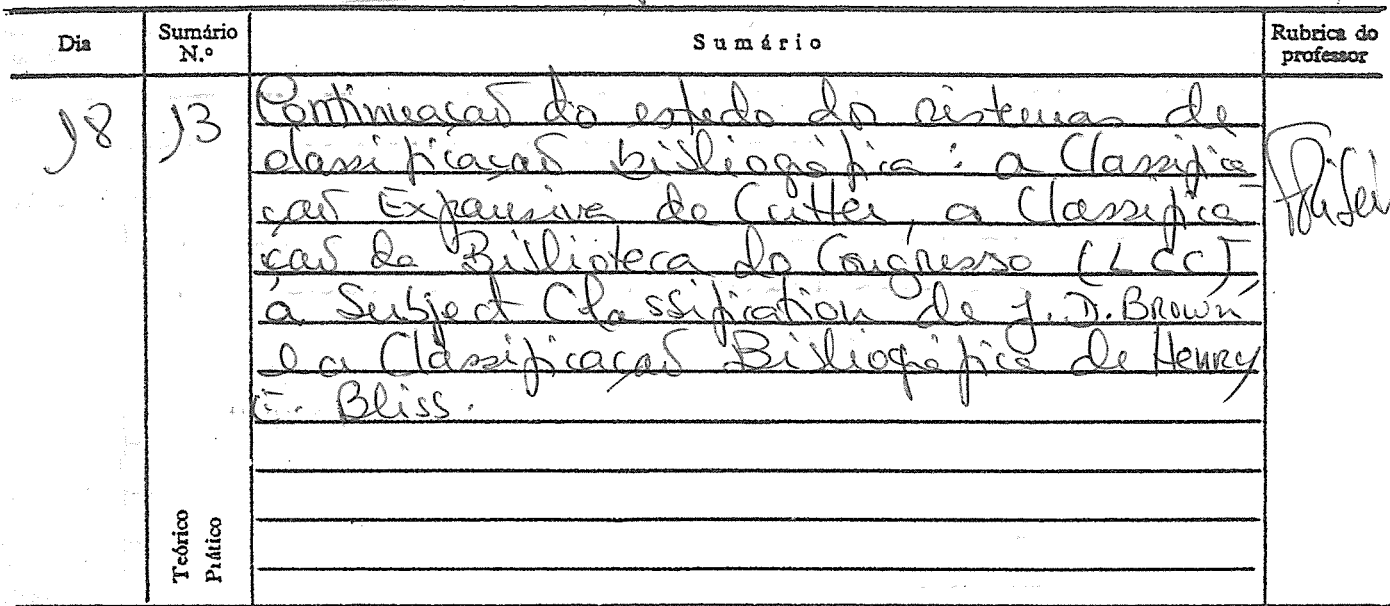 Dia
Sumário N.º
Sumário
Rubrica do professor
18
13
Continuação do estudo dos sistemas de
classificação bibliográfica: a Classifica
ção Expansiva de Cutter, a Classifica
ção da Biblioteca do Congresso (LCC)
a Subject Classification de J. D. Brown
e a Classificação Bibliográfica de Henry
E. Bliss.
Teórico
Prático